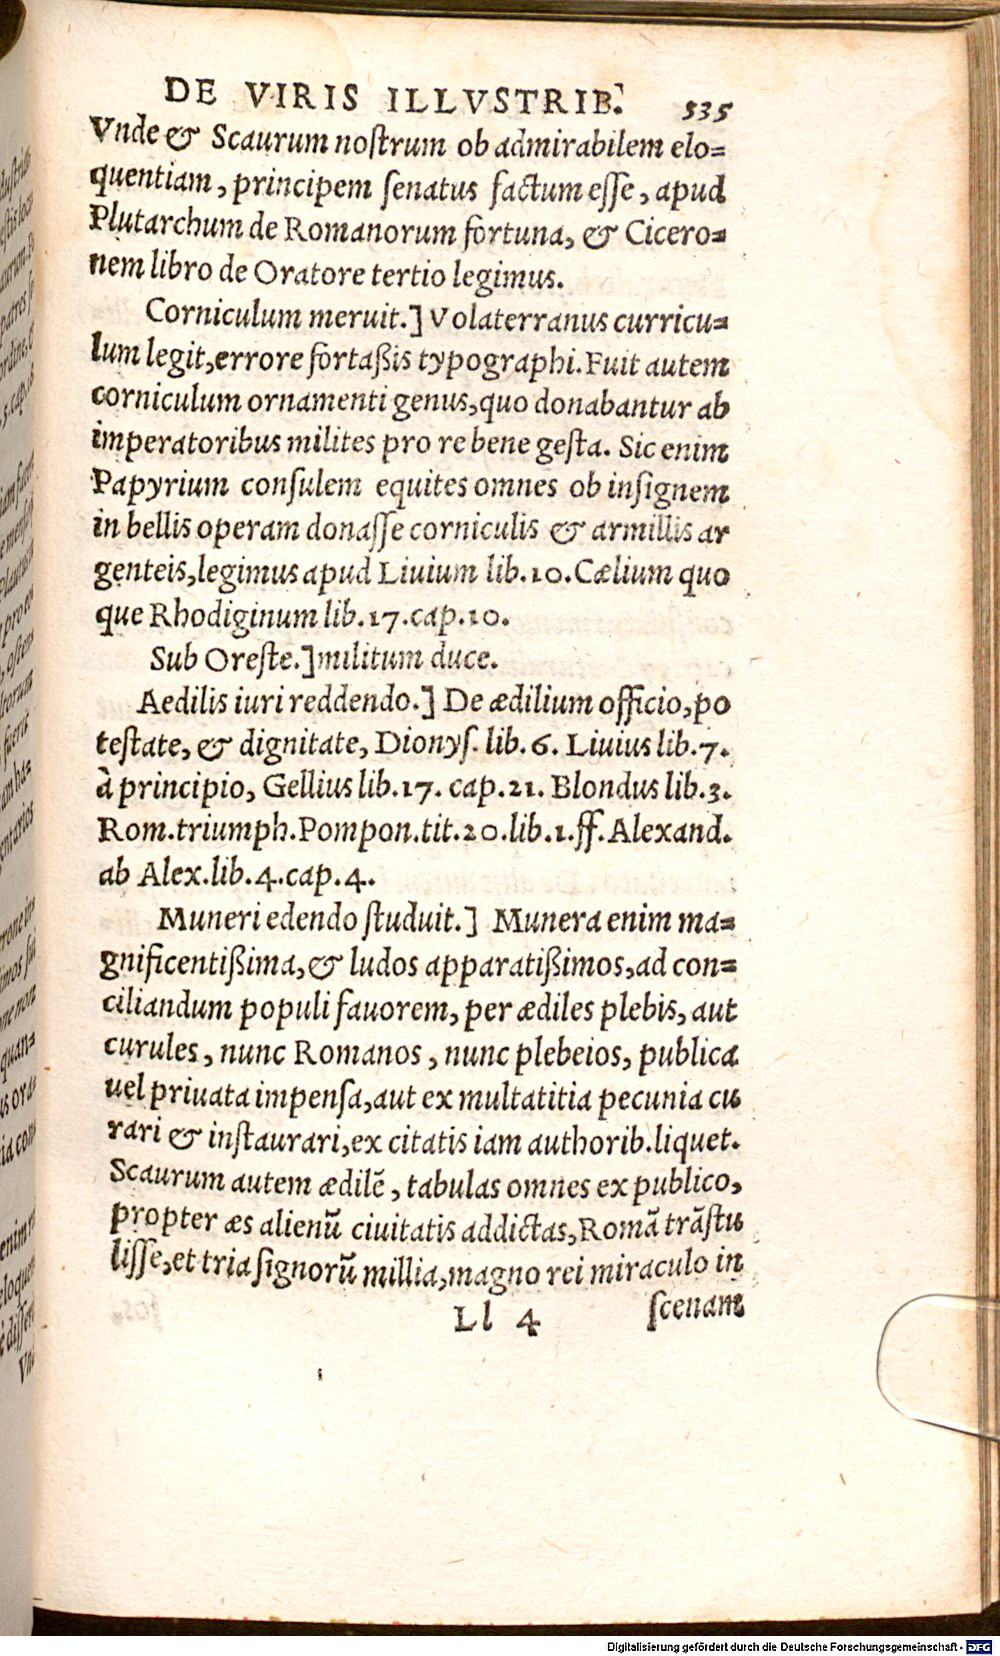 DE VIRIS ILLVSTRIB. 535
Vnde & Scaurum noſtrum ob admirabilem elo=
quentiam, principem ſenatus factum eſſe, apud
Plutarchum de Romanorum fortuna, & Cicero=
nem libro de Oratore tertio legimus.
Corniculum meruit.] Volaterranus curricu=
lum legit, errore fortaßis typographi. Fuit autem
corniculum ornamenti genus, quo donabantur ab
imperatoribus milites pro re bene geſta. Sic enim
Papyrium conſulem equites omnes ob inſignem
in bellis operam donaſſe corniculis & armillis ar
genteis, legimus apud Liuium lib.10. Cælium quo
que Rhodiginum lib.17.cap.10.
Sub Oreſte.] militum duce.
Aedilis iuri reddendo.] De ædilium officio, po
teſtate, & dignitate, Dionyſ. lib. 6. Liuius lib.7.
à principio, Gellius lib.17. cap.21. Blondus lib.3.
Rom.triumph.Pompon.tit.20.lib.1.ff. Alexand.
ab Alex.lib.4.cap.4.
Muneri edendo ſtuduit.] Munera enim ma=
gnificentißima, & ludos apparatißimos, ad con=
ciliandum populi fauorem, per ædiles plebis, aut
curules, nunc Romanos, nunc plebeios, publica
uel priuata impenſa, aut ex multatitia pecunia cu
rari & inſtaurari, ex citatis iam authorib. liquet.
Scaurum autem ædilē, tabulas omnes ex publico,
propter æs alienū ciuitatis addictas, Romā trāſtu
liſſe, et tria ſignorū millia, magno rei miraculo in
Ll 4 ſcenam
Digitalisierung gefördert durch die Deutsche Forschungsgemeinschaft - DFG